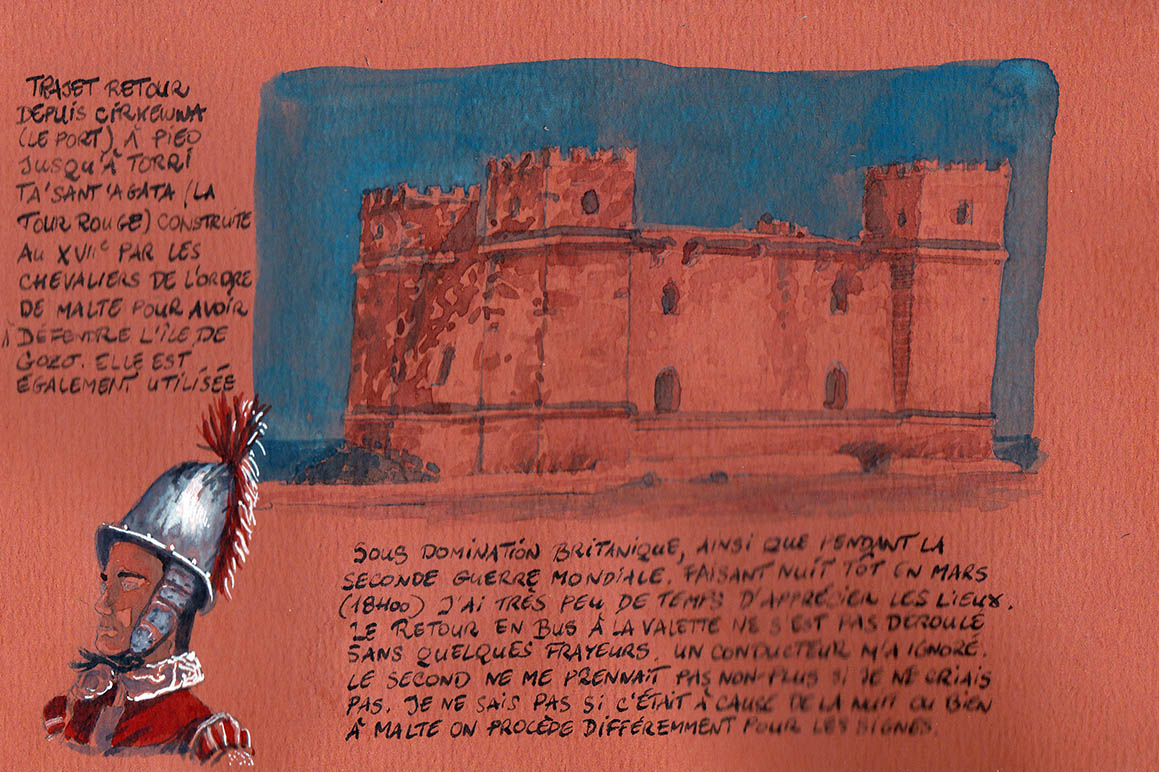 TRAJET RETOUR
DEPUIS CIRKEWWA
(LE PORT) À PIED
JUSQU'À TORRI
TA'SANT'AGATA (LA
TOUR ROUGE) CONSTRUITE
AU XVIIe PAR LES
CHEVALIERS DE L'ORDRE
DE MALTE POUR AVOIR
À DÉFENDRE L'ÎLE DE
GOZO. ELLE EST
ÉGALEMENT UTILISÉE
SOUS DOMINATION BRITANIQUE, AINSI QUE PENDANT LA
SECONDE GUERRE MONDIALE. FAISANT NUIT TÔT EN MARS
(18H00) J'AI TRÈS PEU DE TEMPS D'APPRÉCIER LES LIEUX.
LE RETOUR EN BUS À LA VALETTE NE S'EST PAS DEROULÉ
SANS QUELQUES FRAYEURS. UN CONDUCTEUR M'A IGNORÉ.
LE SECOND NE ME PRENNAIT PAS NON-PLUS SI JE NE CRIAIS
PAS. JE NE SAIS PAS SI C'ÉTAIT À CAUSE DE LA NUIT OU BIEN
À MALTE ON PROCÈDE DIFFÉREMMENT POUR LES SIGNES.